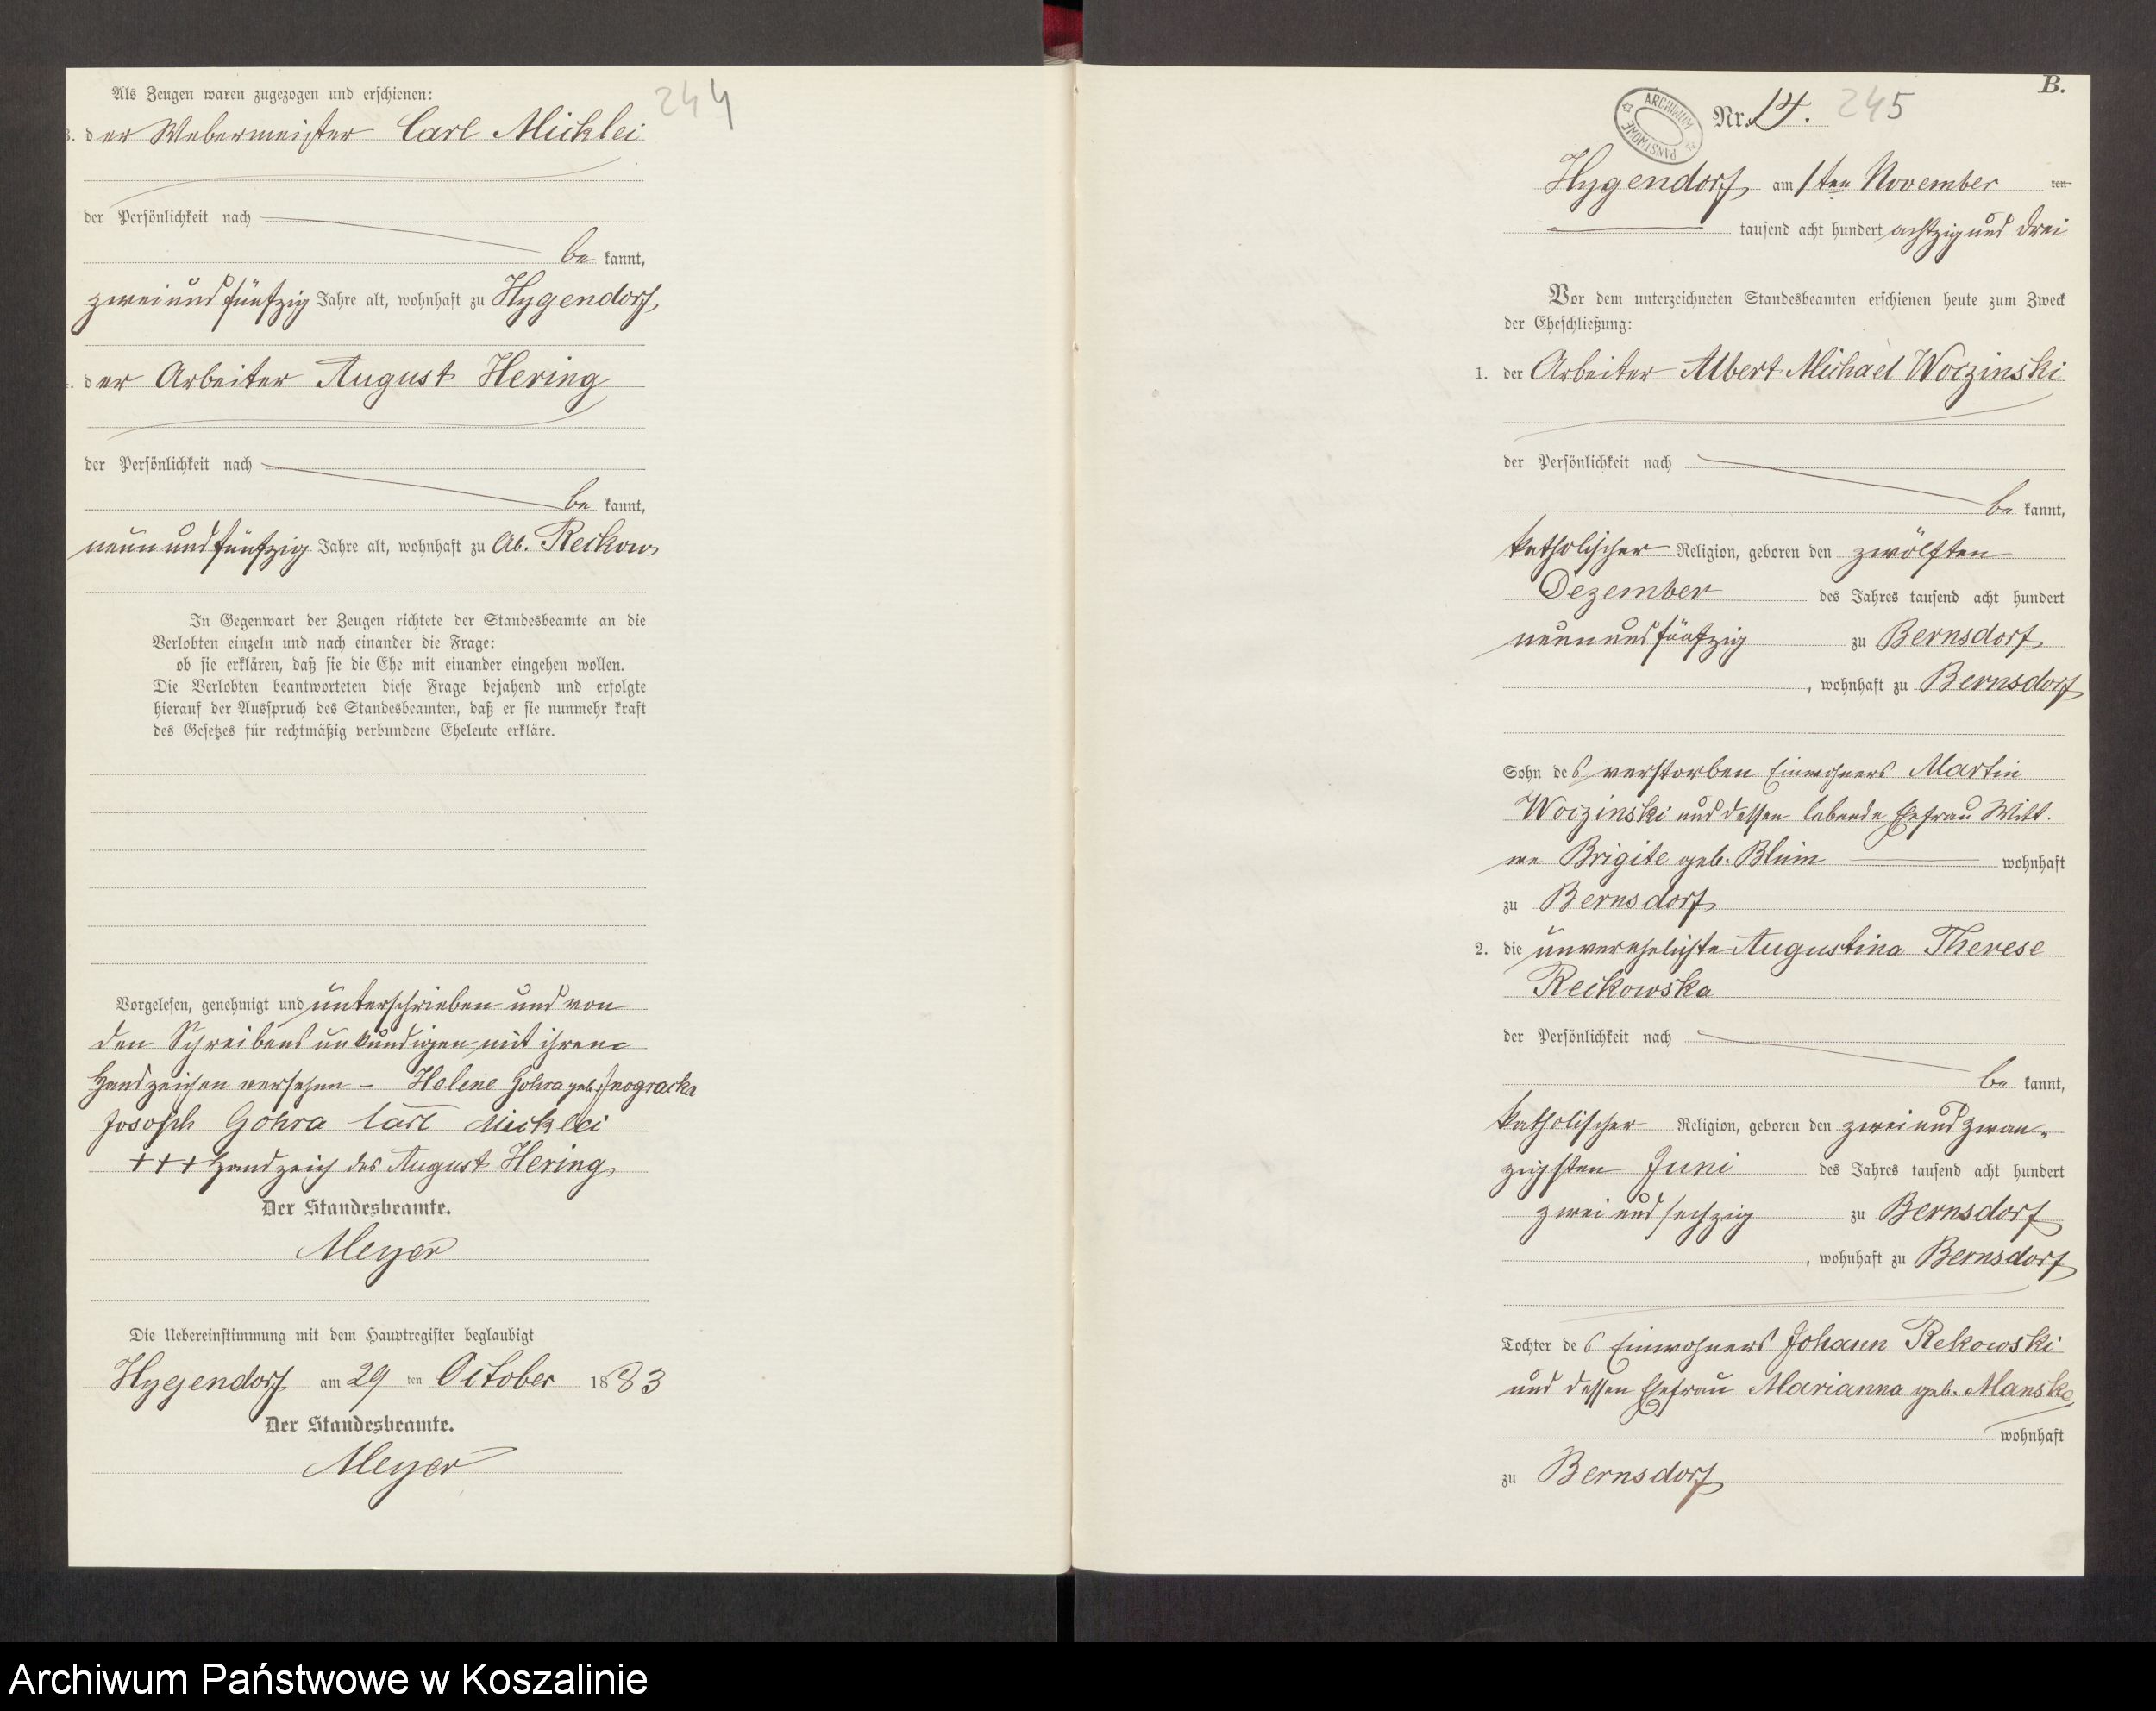 244
Als Zeugen waren zugezogen und erschienen:
3. der Webermeister Carl Micklei
der Persönlichkeit nach
be kannt,
zweiundfünfzig Jahre alt, wohnhaft zu Hygendorf
4. der Arbeiter August Hering
der Persönlichkeit nach
be kannt,
neunundfünfzig Jahre alt, wohnhaft zu Ab. Reckow
In Gegenwart der Zeugen richtete der Standesbeamte an die
Verlobten einzeln und nach einander die Frage:
ob sie erklären, daß sie die Ehe mit einander eingehen wollen.
Die Verlobten beantworteten diese Frage bejahend und erfolgte
hierauf der Ausspruch des Standesbeamten, daß er sie nunmehr kraft
des Gesetzes für rechtmäßig verbundene Eheleute erkläre.
Vorgelesen, genehmigt und unterschrieben und von
den Schreibensunkundigen mit ihren
Handzeichen versehen – Helene Gohra geb.
Josoph Gohra Carl Micklei
+++ Handzeich des August Hering
Der Standesbeamte.
Meyer
Die Uebereinstimmung mit dem Hauptregister beglaubigt
Hygendorf am 29 ten October 1883
Der Standesbeamte.
Meyer
B.
ARCHIWUM PAŃSTWOWE
Nr. 14. 245
Hygendorf am 1ten November ten
tausend acht hundert achtzig und drei
Vor dem unterzeichneten Standesbeamten erschienen heute zum Zweck
der Eheschließung:
1. der Arbeiter Albert Michael Woczinski
der Persönlichkeit nach
be kannt,
katholischer Religion, geboren den zwölften
Dezember des Jahres tausend acht hundert
neunundfünfzig zu Bernsdorf
, wohnhaft zu Bernsdorf
Sohn des verstorben Einwohners Martin
Woczinski und dessen lebende Ehefrau Witt.
we Brigite geb. Blum wohnhaft
zu Bernsdorf
2. die unverehelichte Augustina Therese
Reckowska
der Persönlichkeit nach
be kannt,
katholischer Religion, geboren den zweiundzwan-
zigsten Juni des Jahres tausend acht hundert
zweiundsechzig zu Bernsdorf
, wohnhaft zu Bernsdorf
Tochter des Einwohners Johann Rekowski
und dessen Ehefrau Marianna geb. Manske
wohnhaft
zu Bernsdorf
Archiwum Państwowe w Koszalinie